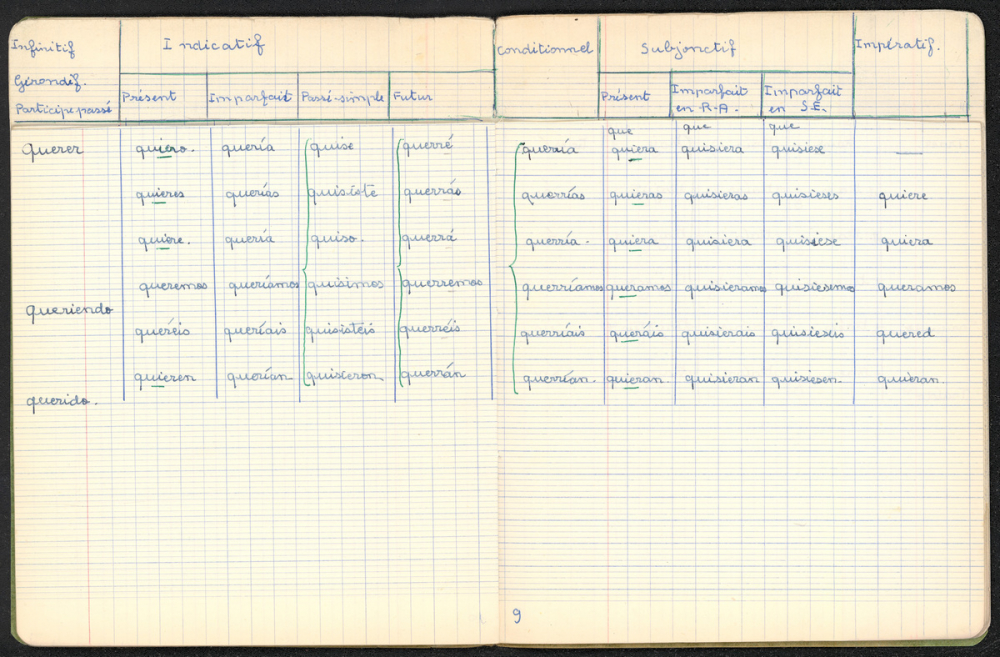 Infinitif Indicatif Conditionnel Subjonctif Impératif.
Gérondif.
Participe passé Présent Imparfait Passé-simple Futur Présent Imparfait en R.A. Imparfait en S.E.
que que que
Querer quiero. quería quise querré querría quiera quisiera quisiese —
quieres querías quisiste querrás querrías quieras quisieras quisieses quiere
quiere. quería quiso. querrá querría. quiera quisiera quisiese quiera
queremos queríamos quisimos querremos querríamos queramos quisieramos quisiesimos queramos
queriendo
queréis queríais quisisteis querréis querríais queráis quisierais quisieseis quered
quieren querían quisieron querrán querrían. quieran quisieran quisiesen. quieran.
querido.
9